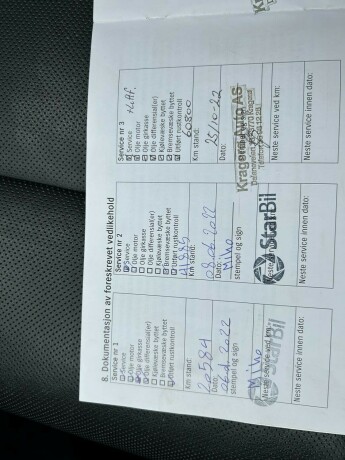 8. Dokumentasjon av foreskrevet vedlikehold
Service nr 1
Service
Olje motor
Olje girkasse
Olje differensial(er)
Kjølevæske byttet
Bremsevæske byttet
Utført rustkontroll
Km stand:
20584
Dato:
2022
stempel og sign
StarBil
Neste service ved km:
Neste service innen dato:
Service nr 2
Service
Olje motor
Olje girkasse
Olje differensial(er)
Kjølevæske byttet
Bremsevæske byttet
Utført rustkontroll
Km stand:
Dato:
08.06.2022
stempel og sign
StarBil
Neste service innen dato:
Service nr 3
Service
Olje motor
Olje girkasse
Olje differensial(er)
Kjølevæske byttet
Bremsevæske byttet
Utført rustkontroll
60800
Km stand:
25/10-22
Dato:
Kragerø Auto AS
Neste service ved km:
Neste service innen dato: